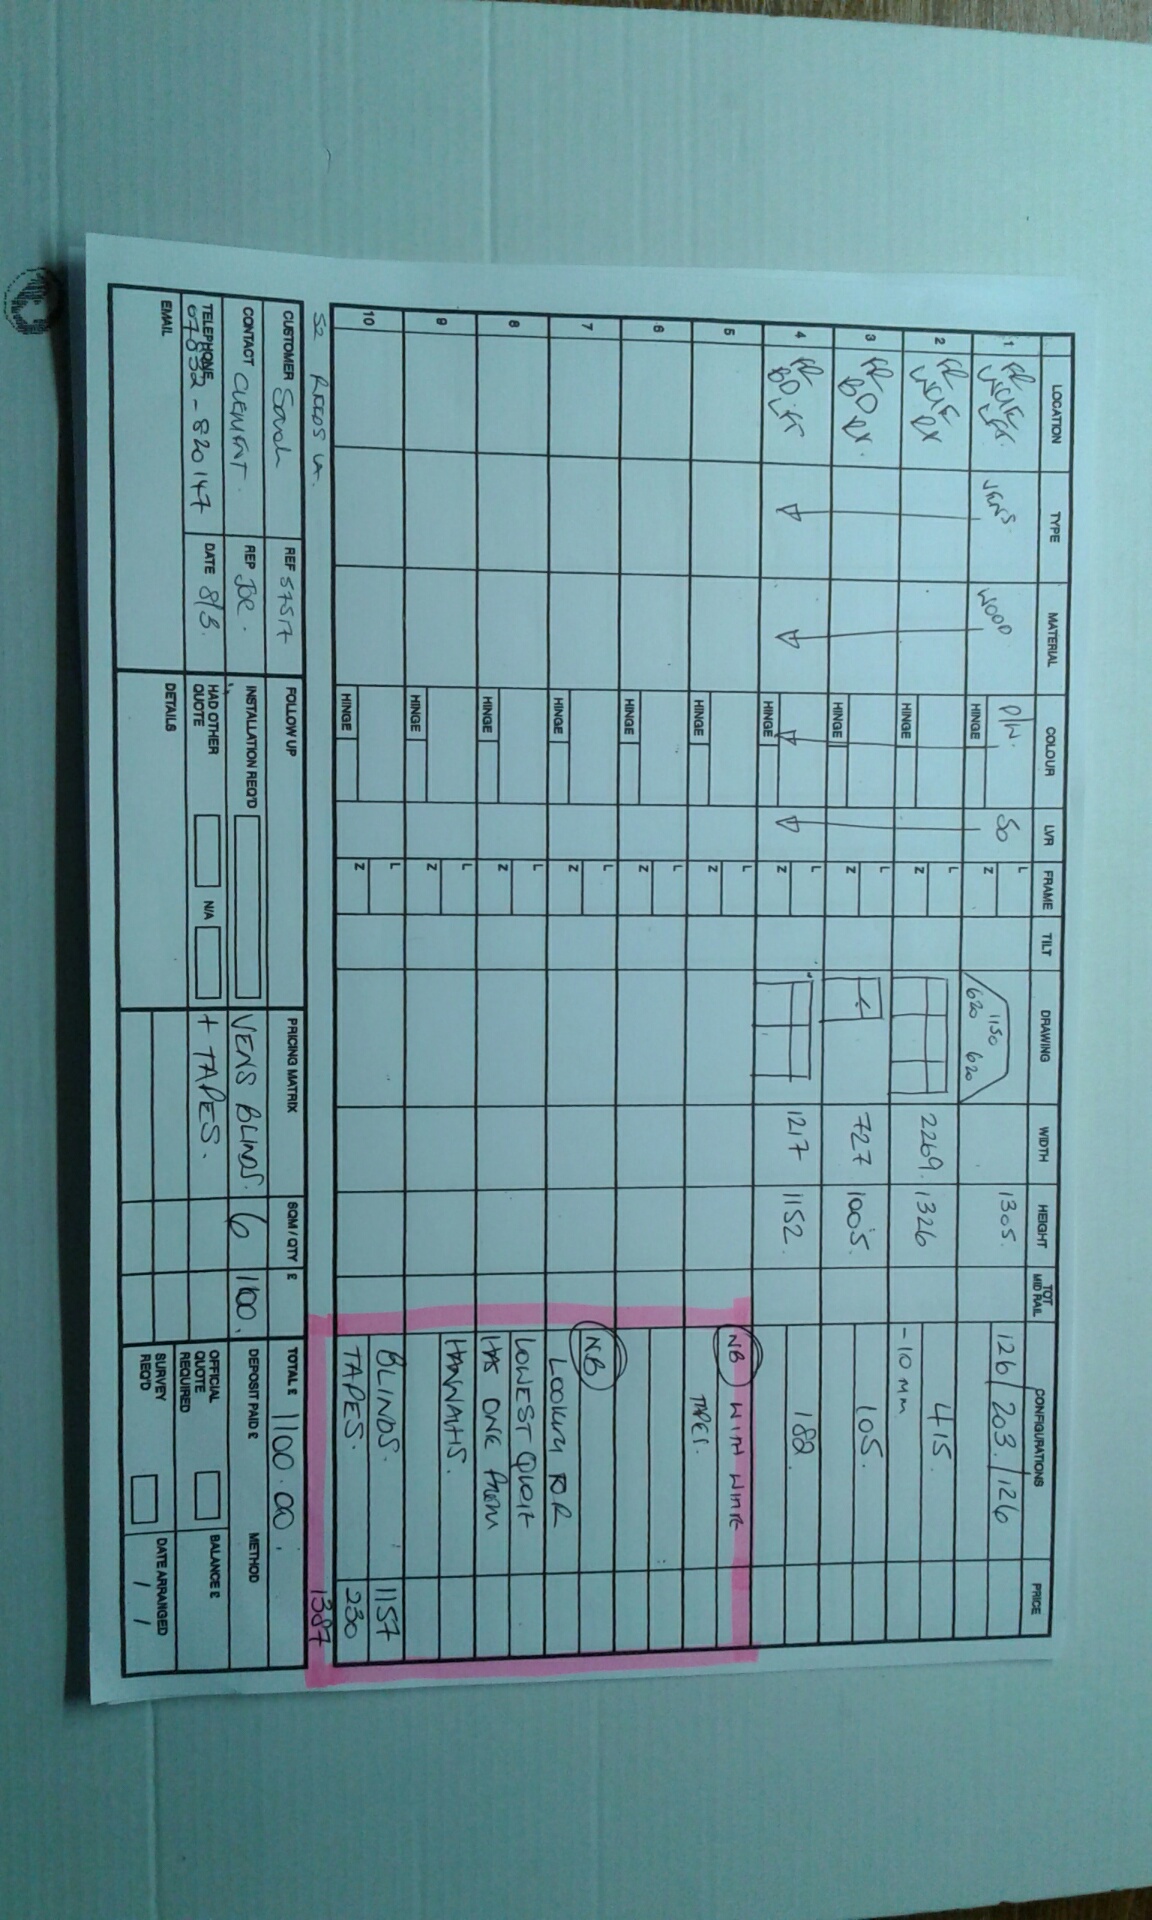 LOCATION TYPE MATERIAL COLOUR LVR FRAME TILT DRAWING WIDTH HEIGHT TOT MID RAIL CONFIGURATIONS PRICE
1 FR LFT VENS WOOD P/W. HINGE 50 L Z 620 1150 620 1305. 126/203./126
2 FR RX HINGE L Z 2269. 1326 415.
-10mm
3 FR BD RX. HINGE L Z 727 1005. 105.
4 FR BD. LFT HINGE L Z 1217 1152. 182.
5 HINGE L Z NB WITH WHITE
TAPES.
6 HINGE L Z
7 HINGE L Z NB
LOOKING FOR
8 HINGE L Z LOWEST QUOTE
HAS ONE FROM
9 HINGE L Z
10 HINGE L Z BLINDS. 1157
TAPES. 230
1387
52 REEDS LA.
CUSTOMER Sarah REF 57517 FOLLOW UP PRICING MATRIX SQM / QTY £ TOTAL £ 1100.00.
CONTACT CLEMENT. REP JOE. INSTALLATION REQ'D VENS BLINDS. 6 1100. DEPOSIT PAID £ METHOD
TELEPHONE 07832-820147 DATE 8/3. HAD OTHER QUOTE N/A + TAPES. OFFICIAL QUOTE REQUIRED BALANCE £
EMAIL DETAILS SURVEY REQ'D DATE ARRANGED / /